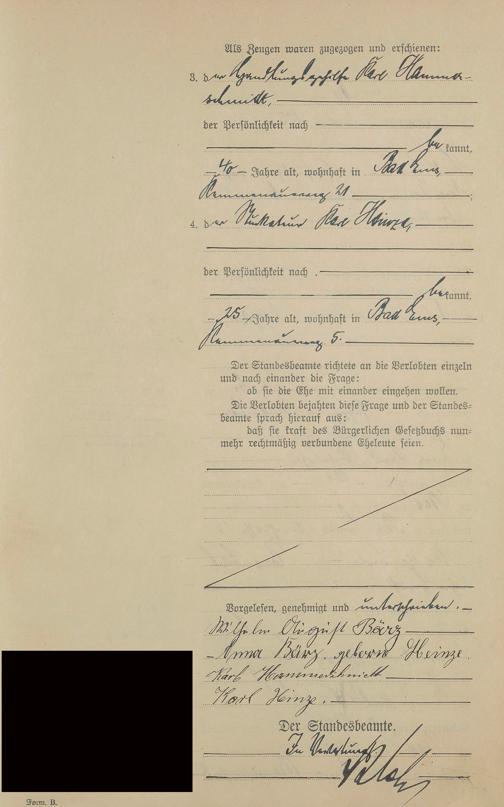 Als Zeugen waren zugezogen und erschienen:
3. der Handlungsgehilfe Karl Hammer-
schmitt,
der Persönlichkeit nach
be kannt,
40 Jahre alt, wohnhaft in Bad Ems,
Kemmenauerweg 21 ;
4. der Stukkateur Karl Heinze,
der Persönlichkeit nach
be kannt,
25 Jahre alt, wohnhaft in Bad Ems,
Kemmenauerweg 5.
Der Standesbeamte richtete an die Verlobten einzeln
und nach einander die Frage:
ob sie die Ehe mit einander eingehen wollen.
Die Verlobten bejahten diese Frage und der Standes-
beamte sprach hierauf aus:
daß sie kraft des Bürgerlichen Gesetzbuchs nun-
mehr rechtmäßig verbundene Eheleute seien.
Vorgelesen, genehmigt und unterschrieben.
Wilhelm August Bärz
Anna Bärz geborene Heinze.
Karl Hammerschmitt
Karl Hinze.
Der Standesbeamte.
In Vertretung
Form. B.